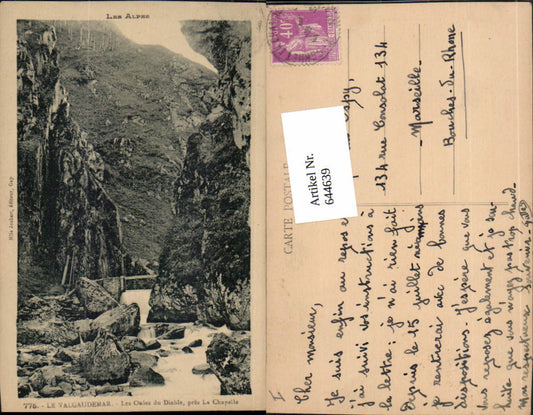 LES ALPES
Mlle Joubert, éditeur, Gap
775. - LE VALGAUDEMAR. - Les Oules du Diable, près La Chapelle
40
CARTE POSTALE
Artikel Nr.
644639
Espy,
134 rue Consolat 134
- Marseille -
Bouches-du-Rhône
I
Cher monsieur,
Je suis enfin au repos et
j'ai suivi vos instructions à
la lettre : je n'ai rien fait
depuis le 15 juillet
je rentrerai avec de bonnes
dispositions. J'espère que vous
vous reposez également et je sou-
haite que vous n'ayez pas trop chaud.
Mon respectueux souvenir